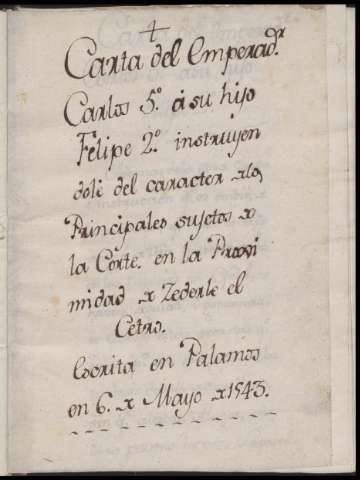 Carta del Emperador
Carlos 5.º á su hijo
Felipe 2.º instruyen
dole del caracter de los
Principales sujetos de
la Corte. en la Proxi
midad de Zederle el
Cetro.
Escrita en Palamos
en 6. de Mayo de 1543.